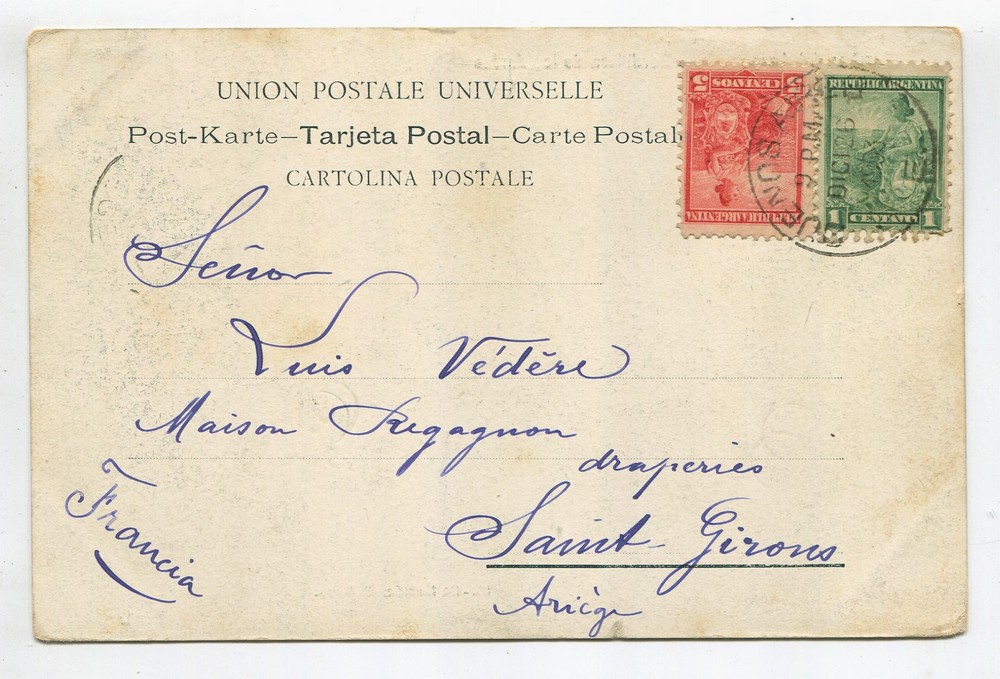 UNION POSTALE UNIVERSELLE
Post-Karte–Tarjeta Postal–Carte Postal
CARTOLINA POSTALE
5 CENTAVOS 5
REPUBLICA ARGENTINA
REPUBLICA ARGENTINA
1 CENTAVO 1
BUENOS AIRES
9 P.M.
Señor
Luis Védère
Maison Regagnon
draperies
Saint-Girons
Ariège
Francia